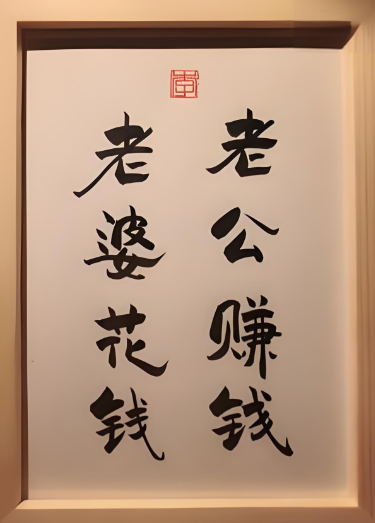 老公赚钱
老婆花钱